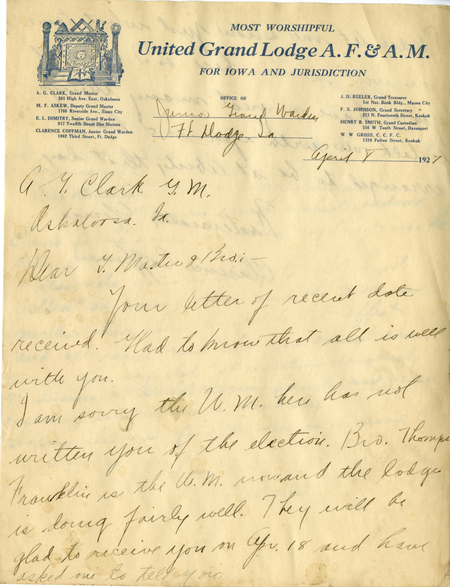 MOST WORSHIPFUL
United Grand Lodge A. F. & A. M.
FOR IOWA AND JURISDICTION
A. G. CLARK, Grand Master
201 High Ave. East, Oskaloosa
M. F. ASKEW, Deputy Grand Master
1708 Riverside Ave., Sioux City
E. L. DIMITRY, Senior Grand Warden
917 Twelfth Street Des Moines
CLARENCE COFFMAN, Junior Grand Warden
1002 Third Street, Ft. Dodge
OFFICE OF
Junior Grand Warden
Ft Dodge, Ia.
J. D. REELER, Grand Treasurer
1st Nat. Bank Bldg., Mason City
F. S. JOHNSON, Grand Secretary
213 N. Fourteenth Street, Keokuk
HENRY B. SMITH, Grand Custodian
W. W. GROSS, C. C. F.
1220 Fulton Street, Keokuk
April 8 1927
A. G. Clark G. M.
Oskaloosa, Ia.
Dear G. Master & Bro:-
Your letter of recent date
received. Glad to know that all is well
with you.
I am sorry the W. M. here has not
written you of the election. Bro. Thomps
Franklin is the W. M. now and the lodge
is doing fairly well. They will be
glad to receive you on Apr. 18 and have
asked me to tell you